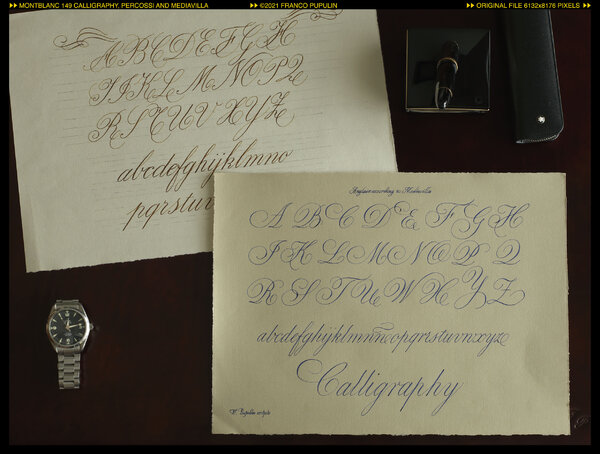 MONTBLANC 149 CALLIGRAPHY, PERCOSSI AND MEDIAVILLA
©2021 FRANCO PUPULIN
ORIGINAL FILE 6132x8176 PIXELS
A B C D E F G H
I J K L M N O P Q
R S T U V X Y Z
abcdefghijklmno
pqrstuv
Anglaise according to Mediavilla
A B C D E F G H
I K L M N O P Q
R S T U W X Y Z
abcdefghijklmnopqrstuvnxyz
Calligraphy
F. Pupulin scripsit